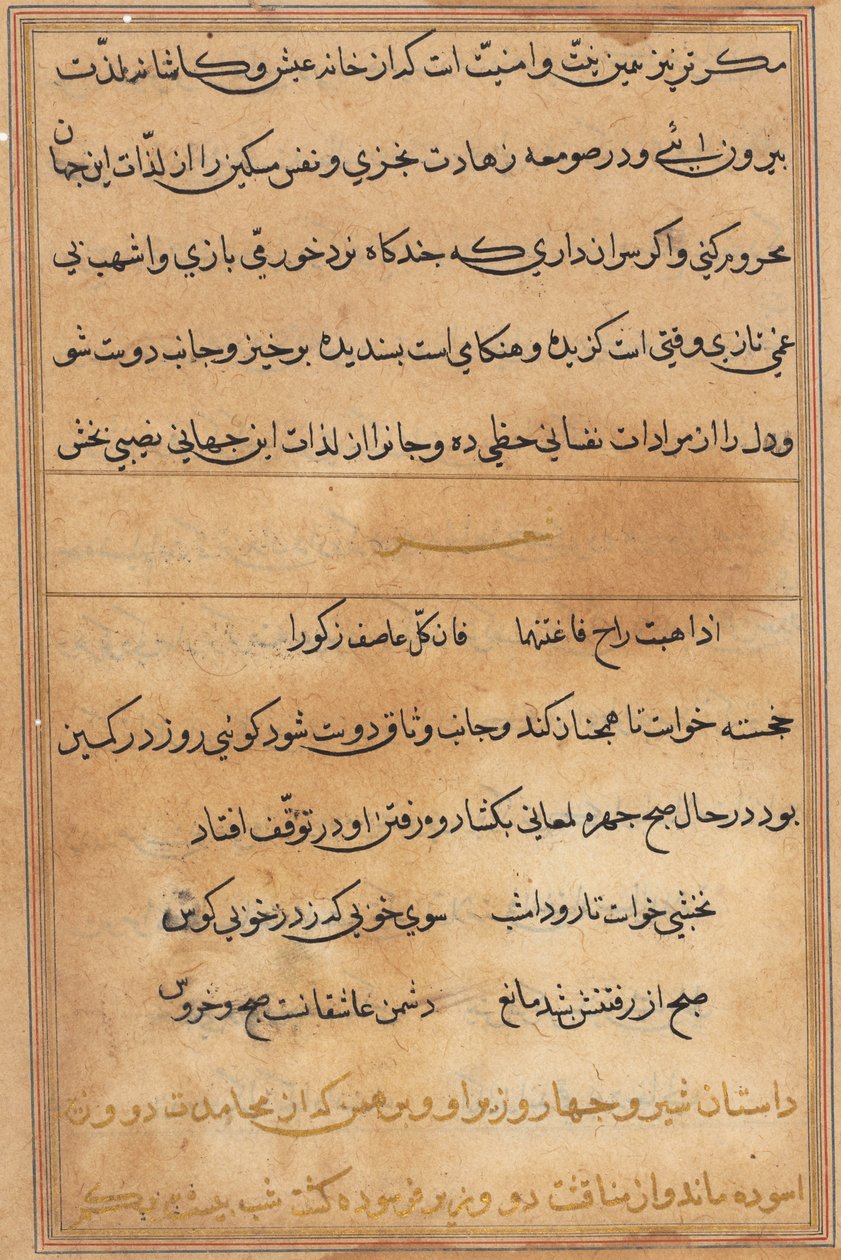 مكر ترا نيز همين نيتّ و امنيتّ است كه از خانه عيش و كاشانه لذّت
بيرون ائي و در صومعه زهادت بخزي و نفس مسكين را از لذّات اين جهان
محروم كني و اكر سر ان داري كه جند كاه نرد خورمّي بازي و اشهب بي
غمي تازي وقتي است كزيده و هنكامي است بسنديده برخيز و جانب دوست شو
و دل را از مرادات نفساني حظي ده و جانرا از لذات اين جهاني نصيبي بخش
شعر
اذا هبت راح فاغتنها فان كلّ عاصف ركورا
خجسته خواست تا همجنان كند و جانب وثاق دوست شود كوئي روز در كمين
بود در حال صبح جهره لمعاني بكشاد و رفتن او در توقّف افتاد
نخشبي خواست تا رود امشب سوي خوبي كه زد ز خوبي كوس
صبح از رفتنش بشد مانع دشمن عاشقانست صبح و خروس
داستان شير و جهار وزير او و برهمن كه از محامدت دو وزير
اسوده ماند و از مناقشت دو وزير فرسوده كشت شب بيست يكم